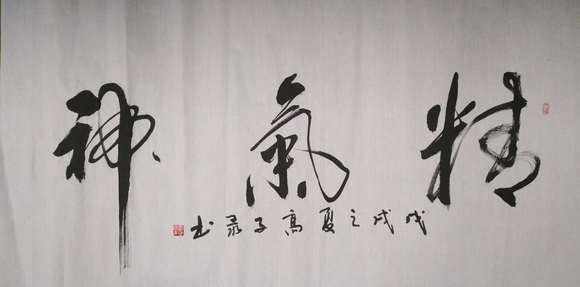 精氣神
戊戌之夏高子书